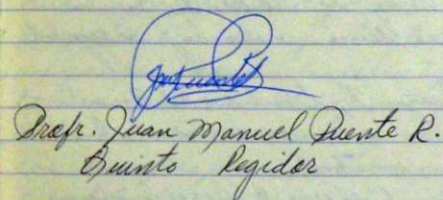 Profr. Juan Manuel Puente R.
Quinto Regidor